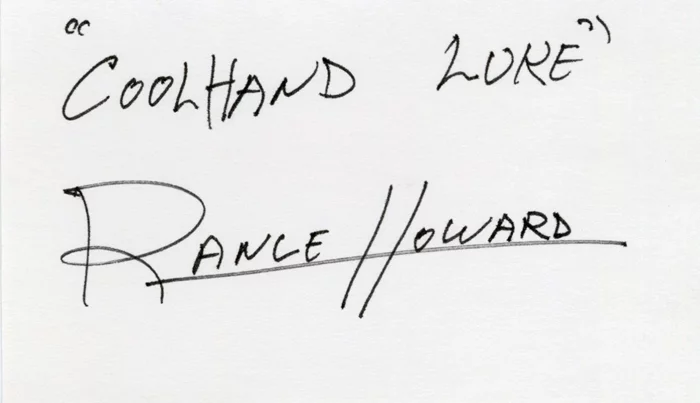 "COOLHAND LUKE"
RANCE HOWARD